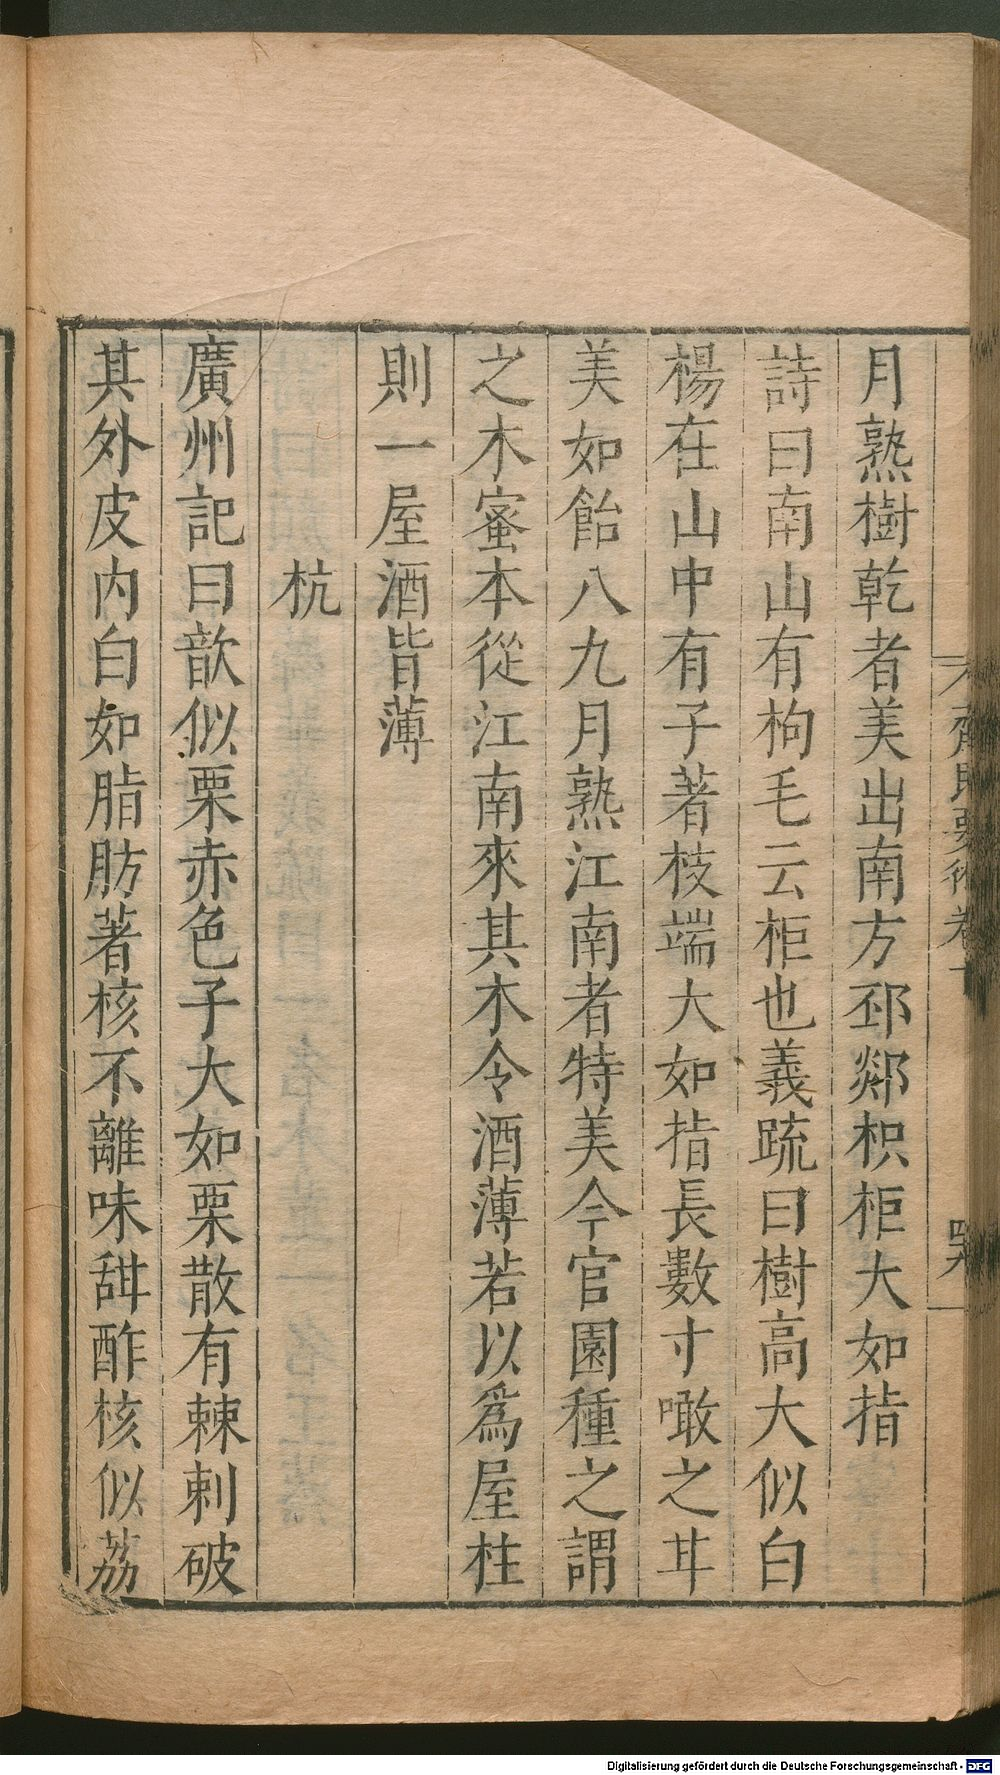 月熟樹乾者美出南方邳郯枳柜大如指
詩曰南山有枸毛云柜也義疏曰樹高大似白
楊在山中有子著枝端大如指長數寸噉之甘
美如飴八九月熟江南者特美今官園種之謂
之木蜜本從江南來其木令酒薄若以爲屋柱
則一屋酒皆薄
杭
廣州記曰歆似栗赤色子大如栗散有棘刺破
其外皮内白如脂肪著核不離味甜酢核似荔
齊民要術卷十
Digitalisierung gefördert durch die Deutsche Forschungsgemeinschaft - DFG